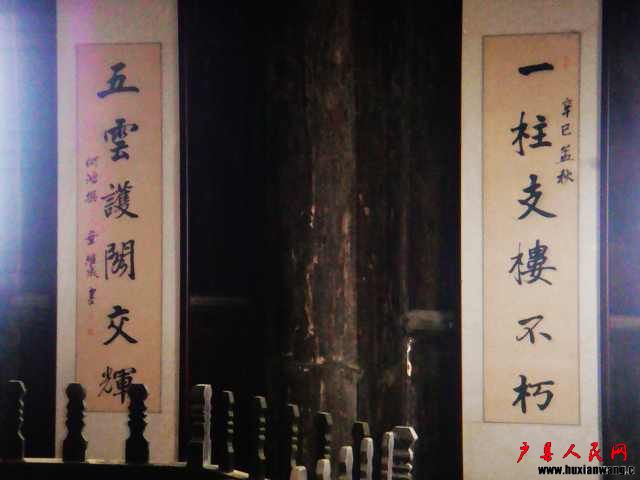 一柱支樓不朽
辛巳孟秋
五雲護閣交輝
户县人民网
www.huxianwang.c